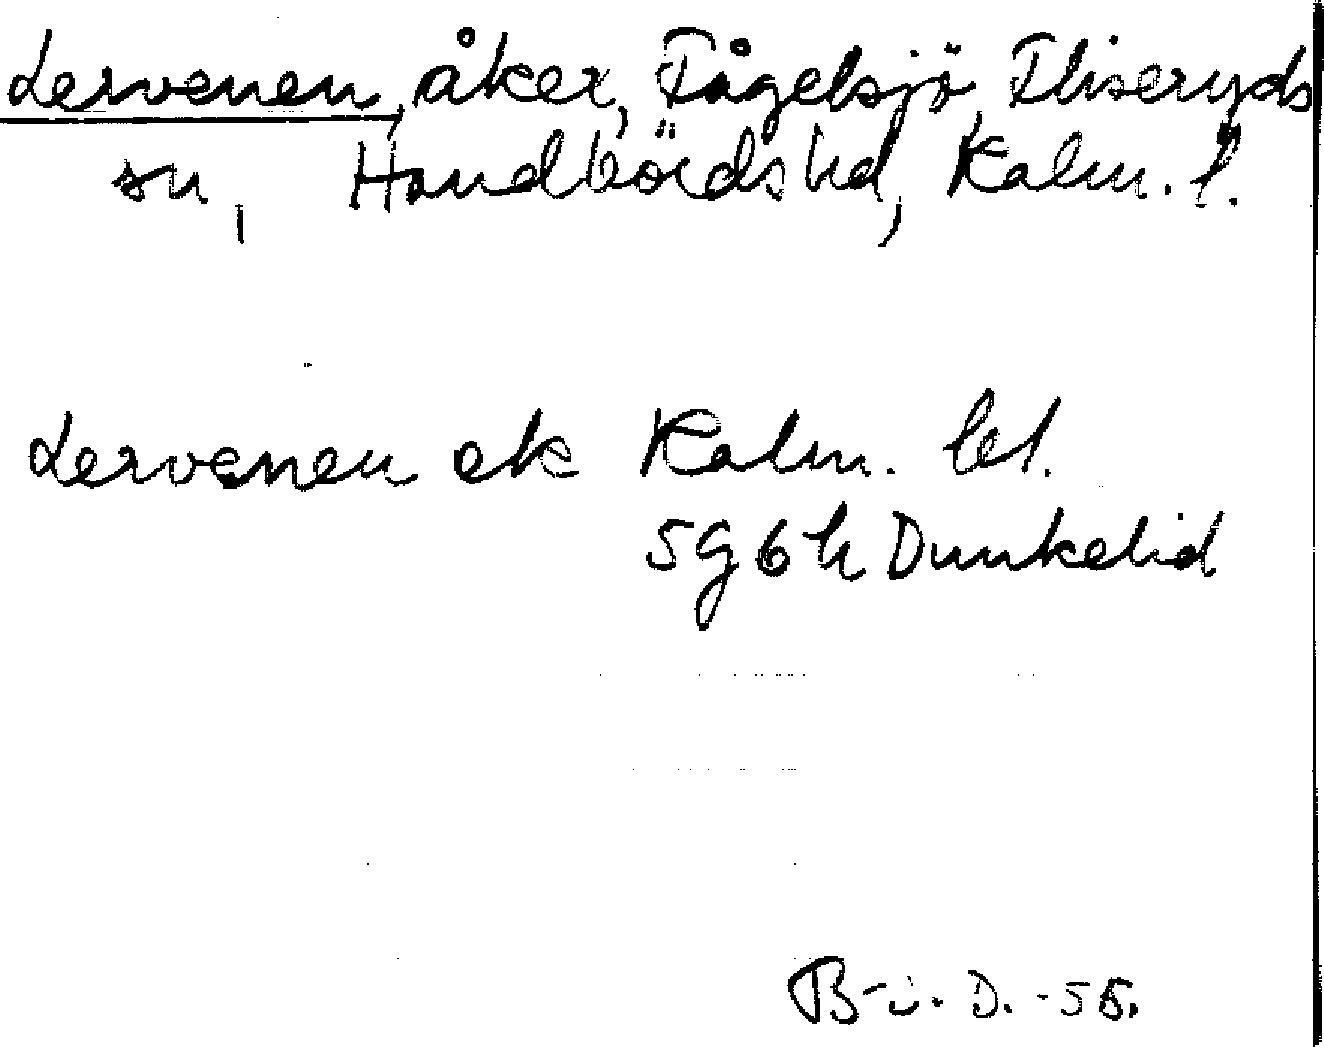 Lervenen, åker, Fågelsjö, Fliseryds
sn, Handbörds hd, Kalm. l.
Lervenen ek Kalm. lel.
5g6h Dunkelid
B-ü. D. -55.